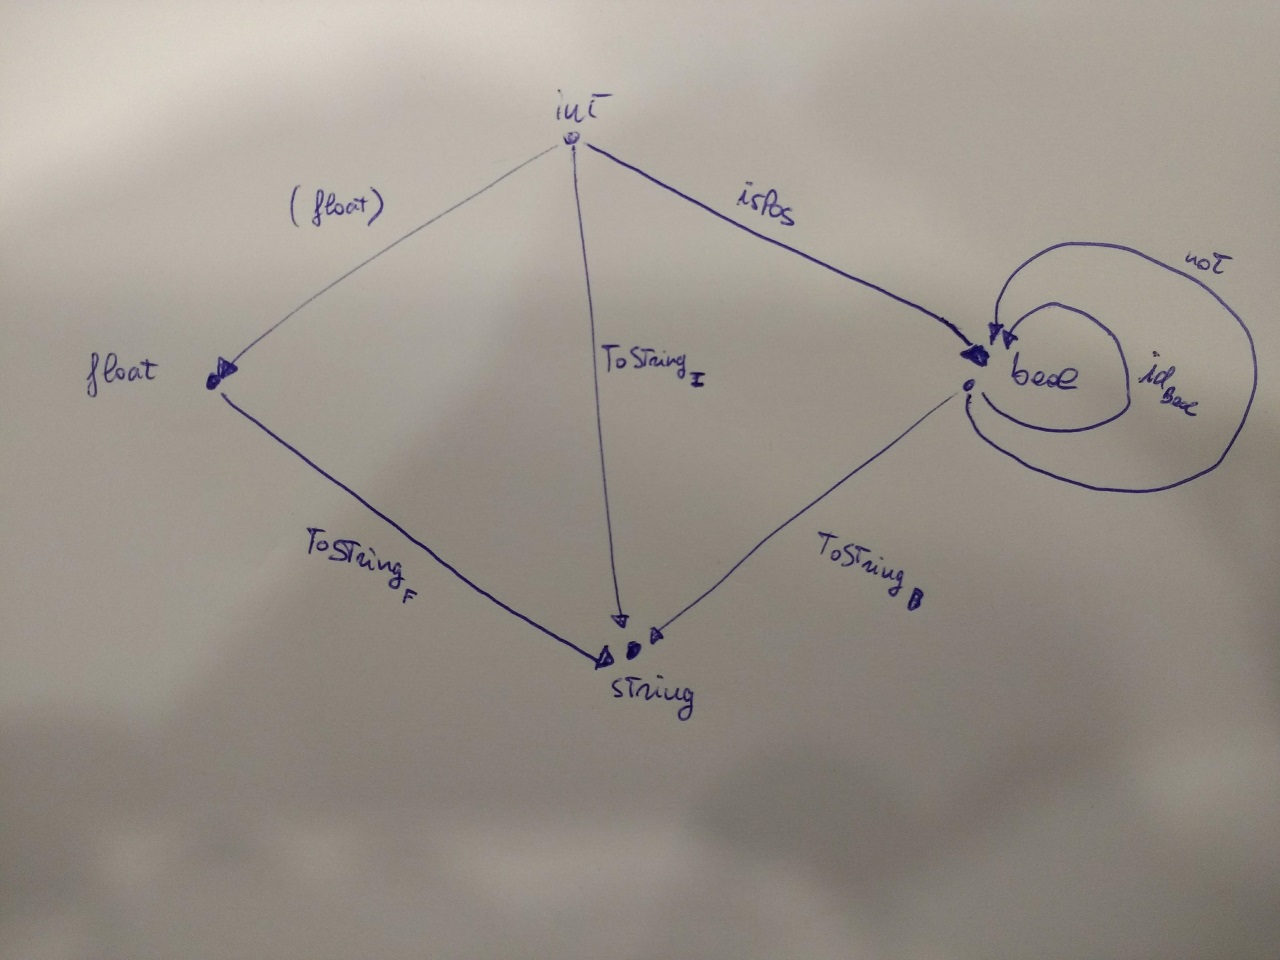 int
(float)
isPos
not
float
ToString I
bool
id Bool
ToString F
ToString B
string